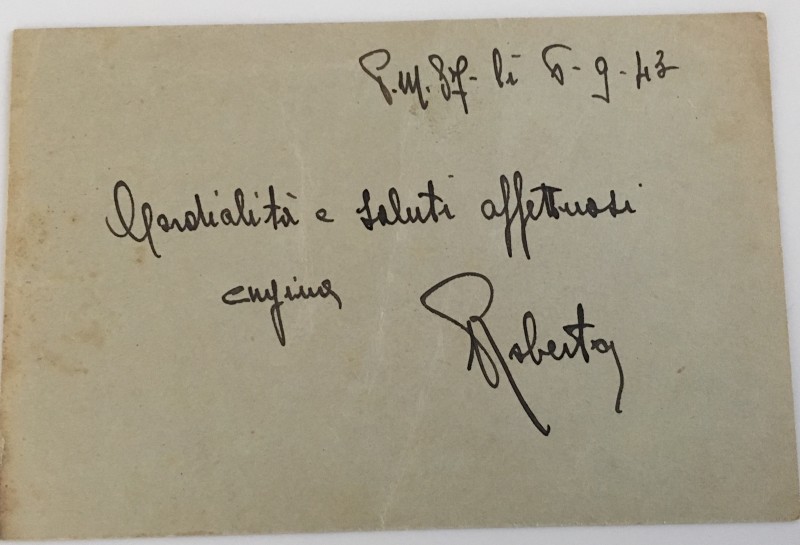 P.M. 37 - lì 5-9-43
Cordialità e saluti affettuosi
cugina Roberta